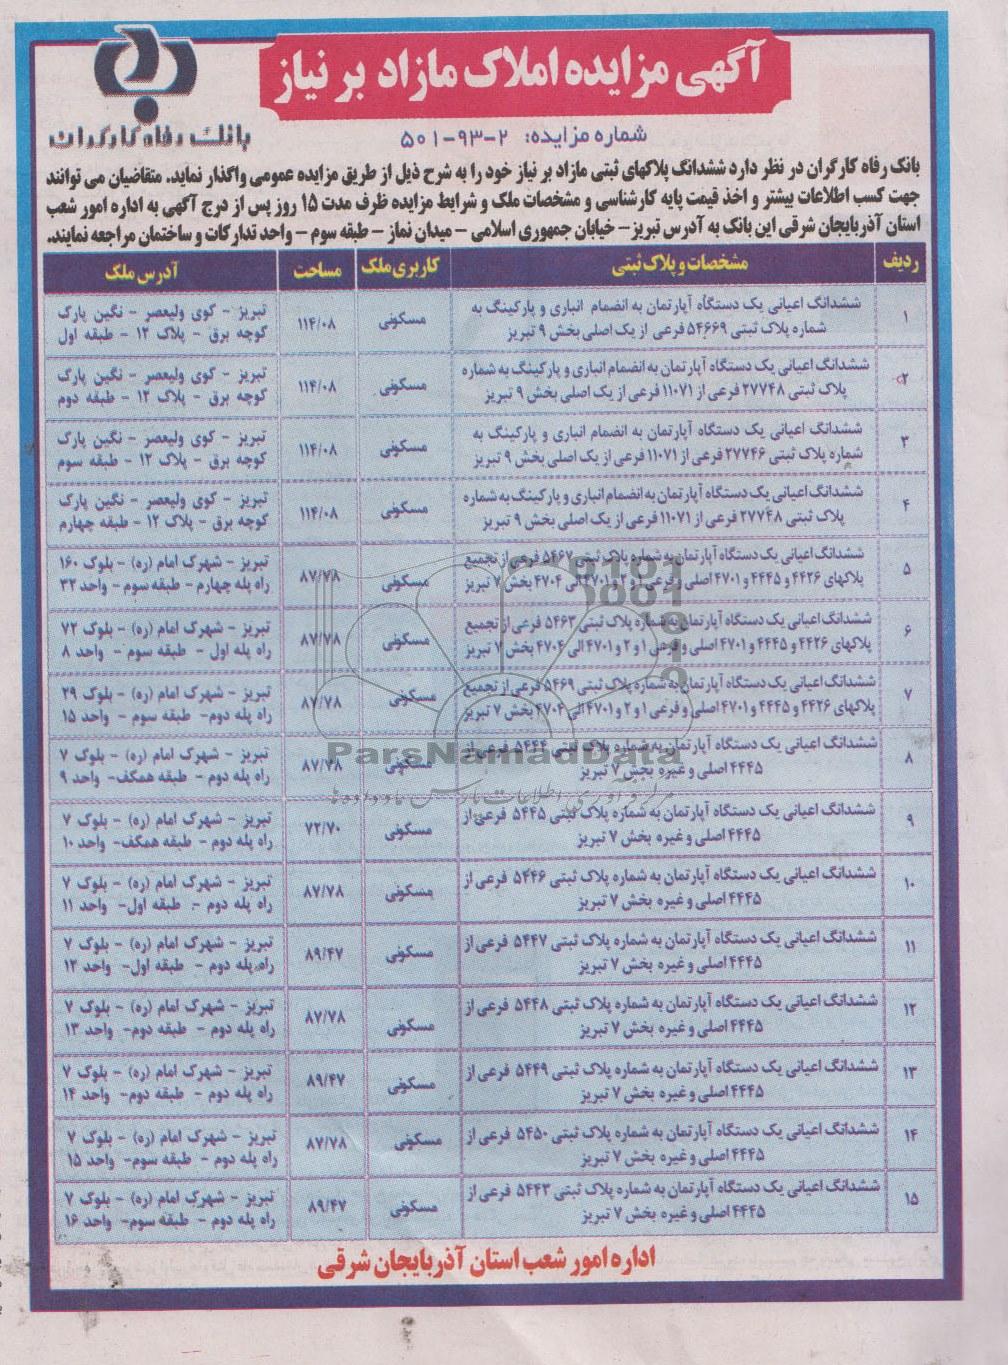 آگهی مزایده املاک مازاد بر نیاز
بانک رفاه کارگران
شماره مزایده: ۲-۹۳-۵۰۱
بانک رفاه کارگران در نظر دارد ششدانگ پلاکهای ثبتی مازاد بر نیاز خود را به شرح ذیل از طریق مزایده عمومی واگذار نماید. متقاضیان می توانند
جهت کسب اطلاعات بیشتر و اخذ قیمت پایه کارشناسی و مشخصات ملک و شرایط مزایده ظرف مدت ۱۵ روز پس از درج آگهی به اداره امور شعب
استان آذربایجان شرقی این بانک به آدرس تبریز- خیابان جمهوری اسلامی - میدان نماز - طبقه سوم - واحد تدارکات و ساختمان مراجعه نمایند.
ردیف مشخصات و پلاک ثبتی کاربری ملک مساحت آدرس ملک
۱ ششدانگ اعیانی یک دستگاه آپارتمان به انضمام انباری و پارکینگ به مسکونی ۱۱۴/۰۸ تبریز - کوی ولیعصر - نگین پارک
شماره پلاک ثبتی ۵۴۶۶۹ فرعی از یک اصلی بخش ۹ تبریز کوچه برق - پلاک ۱۲ - طبقه اول
۲ ششدانگ اعیانی یک دستگاه آپارتمان به انضمام انباری و پارکینگ به شماره مسکونی ۱۱۴/۰۸ تبریز - کوی ولیعصر - نگین پارک
پلاک ثبتی ۲۷۷۴۸ فرعی از ۱۱۰۷۱ فرعی از یک اصلی بخش ۹ تبریز کوچه برق - پلاک ۱۲ - طبقه دوم
۳ ششدانگ اعیانی یک دستگاه آپارتمان به انضمام انباری و پارکینگ به مسکونی ۱۱۴/۰۸ تبریز - کوی ولیعصر - نگین پارک
شماره پلاک ثبتی ۲۷۷۴۶ فرعی از ۱۱۰۷۱ فرعی از یک اصلی بخش ۹ تبریز کوچه برق - پلاک ۱۲ - طبقه سوم
۴ ششدانگ اعیانی یک دستگاه آپارتمان به انضمام انباری و پارکینگ به شماره مسکونی ۱۱۴/۰۸ تبریز - کوی ولیعصر - نگین پارک
پلاک ثبتی ۲۷۷۴۸ فرعی از ۱۱۰۷۱ فرعی از یک اصلی بخش ۹ تبریز کوچه برق - پلاک ۱۲ - طبقه چهارم
۵ ششدانگ اعیانی یک دستگاه آپارتمان به شماره پلاک ثبتی ۵۴۶۷ فرعی از تجمیع مسکونی ۸۷/۷۸ تبریز - شهرک امام (ره) - بلوک ۱۶۰
پلاکهای ۴۴۲۶ و ۴۴۴۵ و ۴۷۰۱ اصلی و فرعی ۱ و ۲ و ۴۷۰۱ الی ۴۷۰۴ بخش ۷ تبریز راه پله چهارم - طبقه سوم - واحد ۳۲
۶ ششدانگ اعیانی یک دستگاه آپارتمان به شماره پلاک ثبتی ۵۴۶۳ فرعی از تجمیع مسکونی ۸۷/۷۸ تبریز - شهرک امام (ره) - بلوک ۷۲
پلاکهای ۴۴۲۶ و ۴۴۴۵ و ۴۷۰۱ اصلی و فرعی ۱ و ۲ و ۴۷۰۱ الی ۴۷۰۴ بخش ۷ تبریز راه پله اول - طبقه سوم - واحد ۸
۷ ششدانگ اعیانی یک دستگاه آپارتمان به شماره پلاک ثبتی ۵۴۶۹ فرعی از تجمیع مسکونی ۸۷/۷۸ تبریز - شهرک امام (ره) - بلوک ۲۹
پلاکهای ۴۴۲۶ و ۴۴۴۵ و ۴۷۰۱ اصلی و فرعی ۱ و ۲ و ۴۷۰۱ الی ۴۷۰۴ بخش ۷ تبریز راه پله دوم- طبقه سوم - واحد ۱۵
۸ ششدانگ اعیانی یک دستگاه آپارتمان به شماره پلاک ثبتی ۵۴۴۴ فرعی از مسکونی ۸۷/۷۸ تبریز - شهرک امام (ره) - بلوک ۷
۴۴۴۵ اصلی و غیره بخش ۷ تبریز راه پله دوم - طبقه همکف- واحد ۹
ParsNamadData
مرکز فرآوری اطلاعات پارس نماد داده ها
۹ ششدانگ اعیانی یک دستگاه آپارتمان به شماره پلاک ثبتی ۵۴۴۵ فرعی از مسکونی ۷۲/۷۰ تبریز - شهرک امام (ره) - بلوک ۷
۴۴۴۵ اصلی و غیره بخش ۷ تبریز راه پله دوم - طبقه همکف- واحد ۱۰
۱۰ ششدانگ اعیانی یک دستگاه آپارتمان به شماره پلاک ثبتی ۵۴۴۶ فرعی از مسکونی ۸۷/۷۸ تبریز - شهرک امام (ره) - بلوک ۷
۴۴۴۵ اصلی و غیره بخش ۷ تبریز راه پله دوم - طبقه اول- واحد ۱۱
۱۱ ششدانگ اعیانی یک دستگاه آپارتمان به شماره پلاک ثبتی ۵۴۴۷ فرعی از مسکونی ۸۹/۴۷ تبریز - شهرک امام (ره) - بلوک ۷
۴۴۴۵ اصلی و غیره بخش ۷ تبریز راه پله دوم - طبقه اول- واحد ۱۲
۱۲ ششدانگ اعیانی یک دستگاه آپارتمان به شماره پلاک ثبتی ۵۴۴۸ فرعی از مسکونی ۸۷/۷۸ تبریز - شهرک امام (ره) - بلوک ۷
۴۴۴۵ اصلی و غیره بخش ۷ تبریز راه پله دوم - طبقه دوم- واحد ۱۳
۱۳ ششدانگ اعیانی یک دستگاه آپارتمان به شماره پلاک ثبتی ۵۴۴۹ فرعی از مسکونی ۸۹/۴۷ تبریز - شهرک امام (ره) - بلوک ۷
۴۴۴۵ اصلی و غیره بخش ۷ تبریز راه پله دوم - طبقه دوم- واحد ۱۴
۱۴ ششدانگ اعیانی یک دستگاه آپارتمان به شماره پلاک ثبتی ۵۴۵۰ فرعی از مسکونی ۸۷/۷۸ تبریز - شهرک امام (ره) - بلوک ۷
۴۴۴۵ اصلی و غیره بخش ۷ تبریز راه پله دوم - طبقه سوم- واحد ۱۵
۱۵ ششدانگ اعیانی یک دستگاه آپارتمان به شماره پلاک ثبتی ۵۴۴۳ فرعی از مسکونی ۸۹/۴۷ تبریز - شهرک امام (ره) - بلوک ۷
۴۴۴۵ اصلی و غیره بخش ۷ تبریز راه پله دوم - طبقه سوم- واحد ۱۶
اداره امور شعب استان آذربایجان شرقی